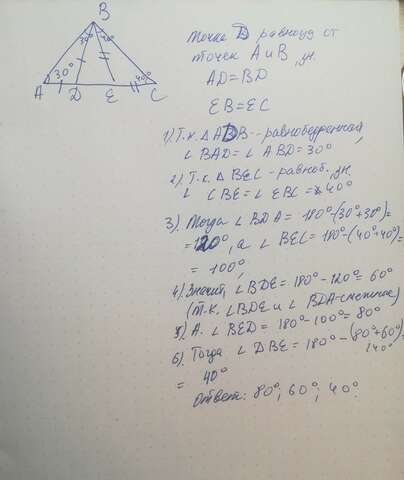 B
30° 40°
30° 40°
A D E C
Точка D равноуд от
точек A и B, зн.
AD = BD
EB = EC
1) Т.к. △ ADB - равнобедренный,
∠ BAD = ∠ ABD = 30°
2) Т.к. △ BEC - равноб., зн.
∠ CBE = ∠ EBC = 40°
3) Тогда ∠ BDA = 180° - (30° + 30°) =
= 120°, а ∠ BEC = 180° - (40° + 40°) =
= 100°,
4) Значит, ∠ BDE = 180° - 120° = 60°
(т.к. ∠ BDE и ∠ BDA - смежные)
5) А ∠ BED = 180° - 100° = 80°
6) Тогда ∠ DBE = 180° - (80° + 60°) =
140°
= 40°
Ответ: 80°; 60°; 40°